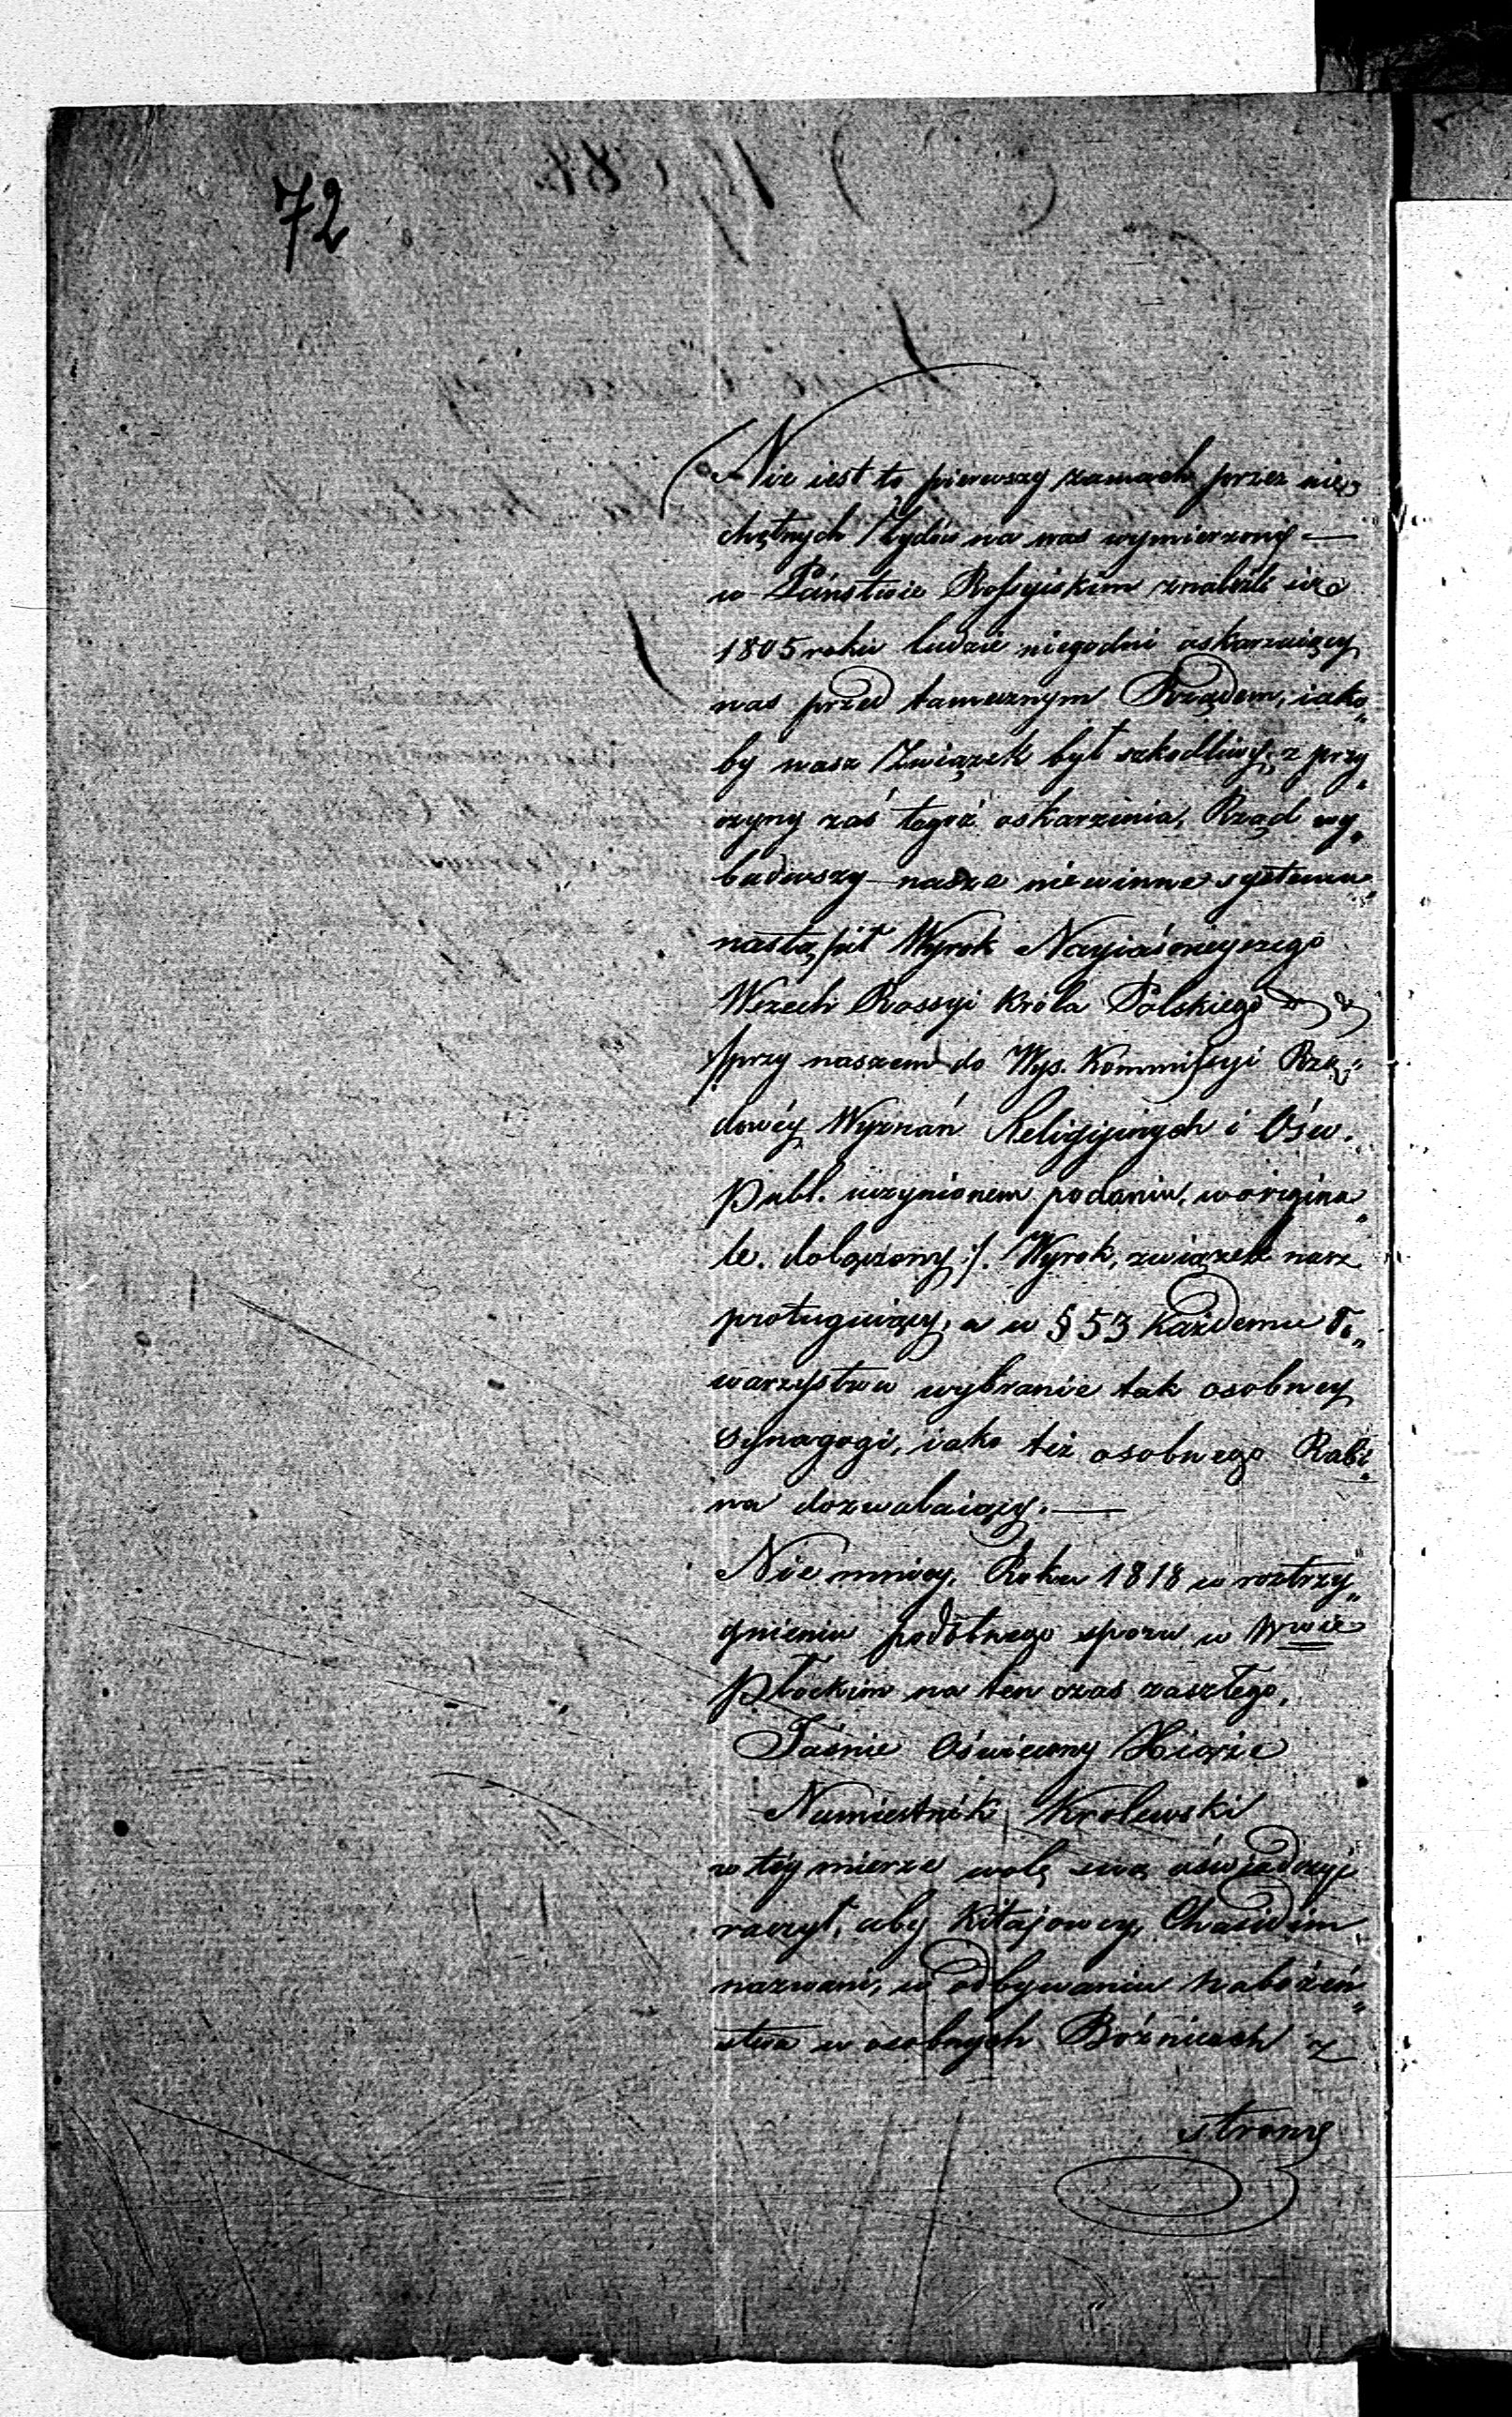 72
Nie iest to pierwszy zamach przez nie„
chętnych Żydów na nas wymierzony —
w Państwie Rossyiskim znaleźli się
1805 roku ludzie niegodni oskarzaiący
nas przed tamecznym Rządem, iako„
by nasz Związek był szkodliwy, z przy„
czyny zaś tegoż oskarzenia, Rząd wy„
badawszy nasze niewinne systema„
nastąpił Wyrok Nayiaśnieyszego
Wszech Rossyi Króla Polskiego
/:przy naszem do Wys. Kommissyi Rzą„
dowéy Wyznań Religiynych i Ośw.
Publ. uczynionem podaniu, w origina„
le. dołączony:/. Wyrok, związek nasz
protuguiący, a w § 53 każdemu To„
warzystwu wybranie tak osobney
Synagogi, iako też osobnego Rabi„
na dozwalaiący. —
Nie mniey, Roku 1818 w roztrzy„
gnieniu podobnego sporu w Wwie
Płockim na ten czas zaszłego,
Jaśnie Oświecony Xiąże
Namiestnik Krolewski
w téy mierze wolę swą oświadczyć
raczył, aby Kitajowcy, Chasidim
nazwani, w odbywaniu Nabożeń„
stwa w osobnych Bóżnicach z
strony